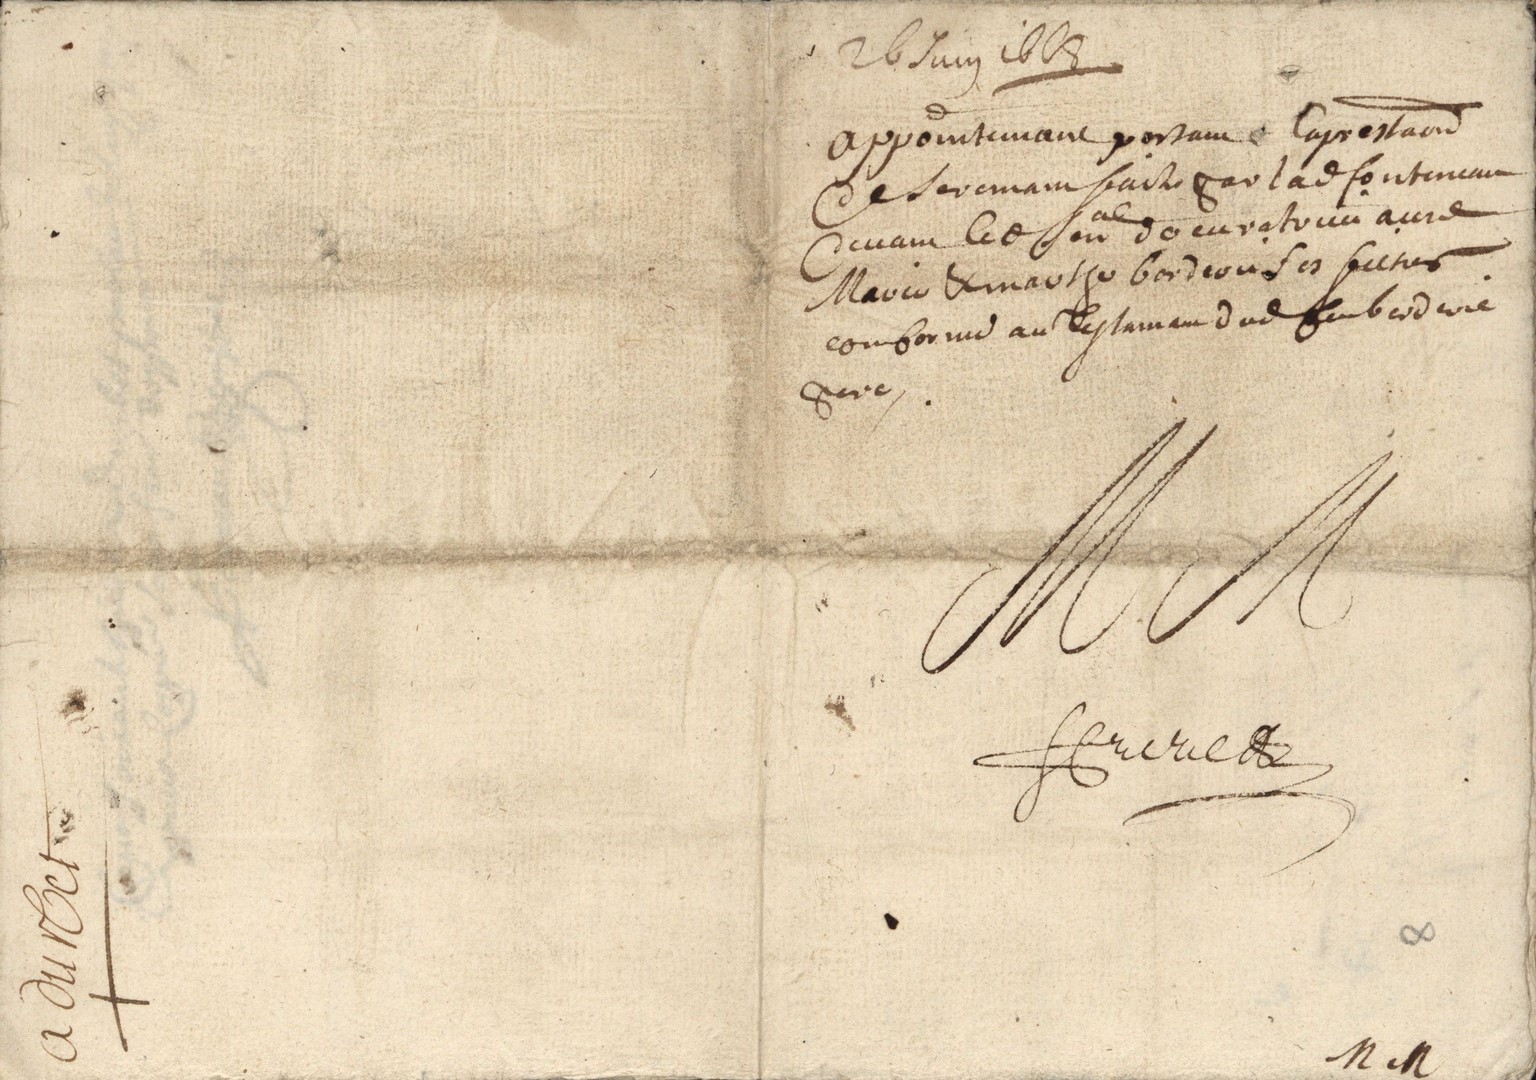 26 Juin 1668
Appointemant portant la prestaõn
de seremant faite par lad fonteneau
devant led sen^al de curatrice aux d
Marie & marthe borderie ses filles
conforme au testamant dud feu borderie
pere.
M M
a du
8
M M